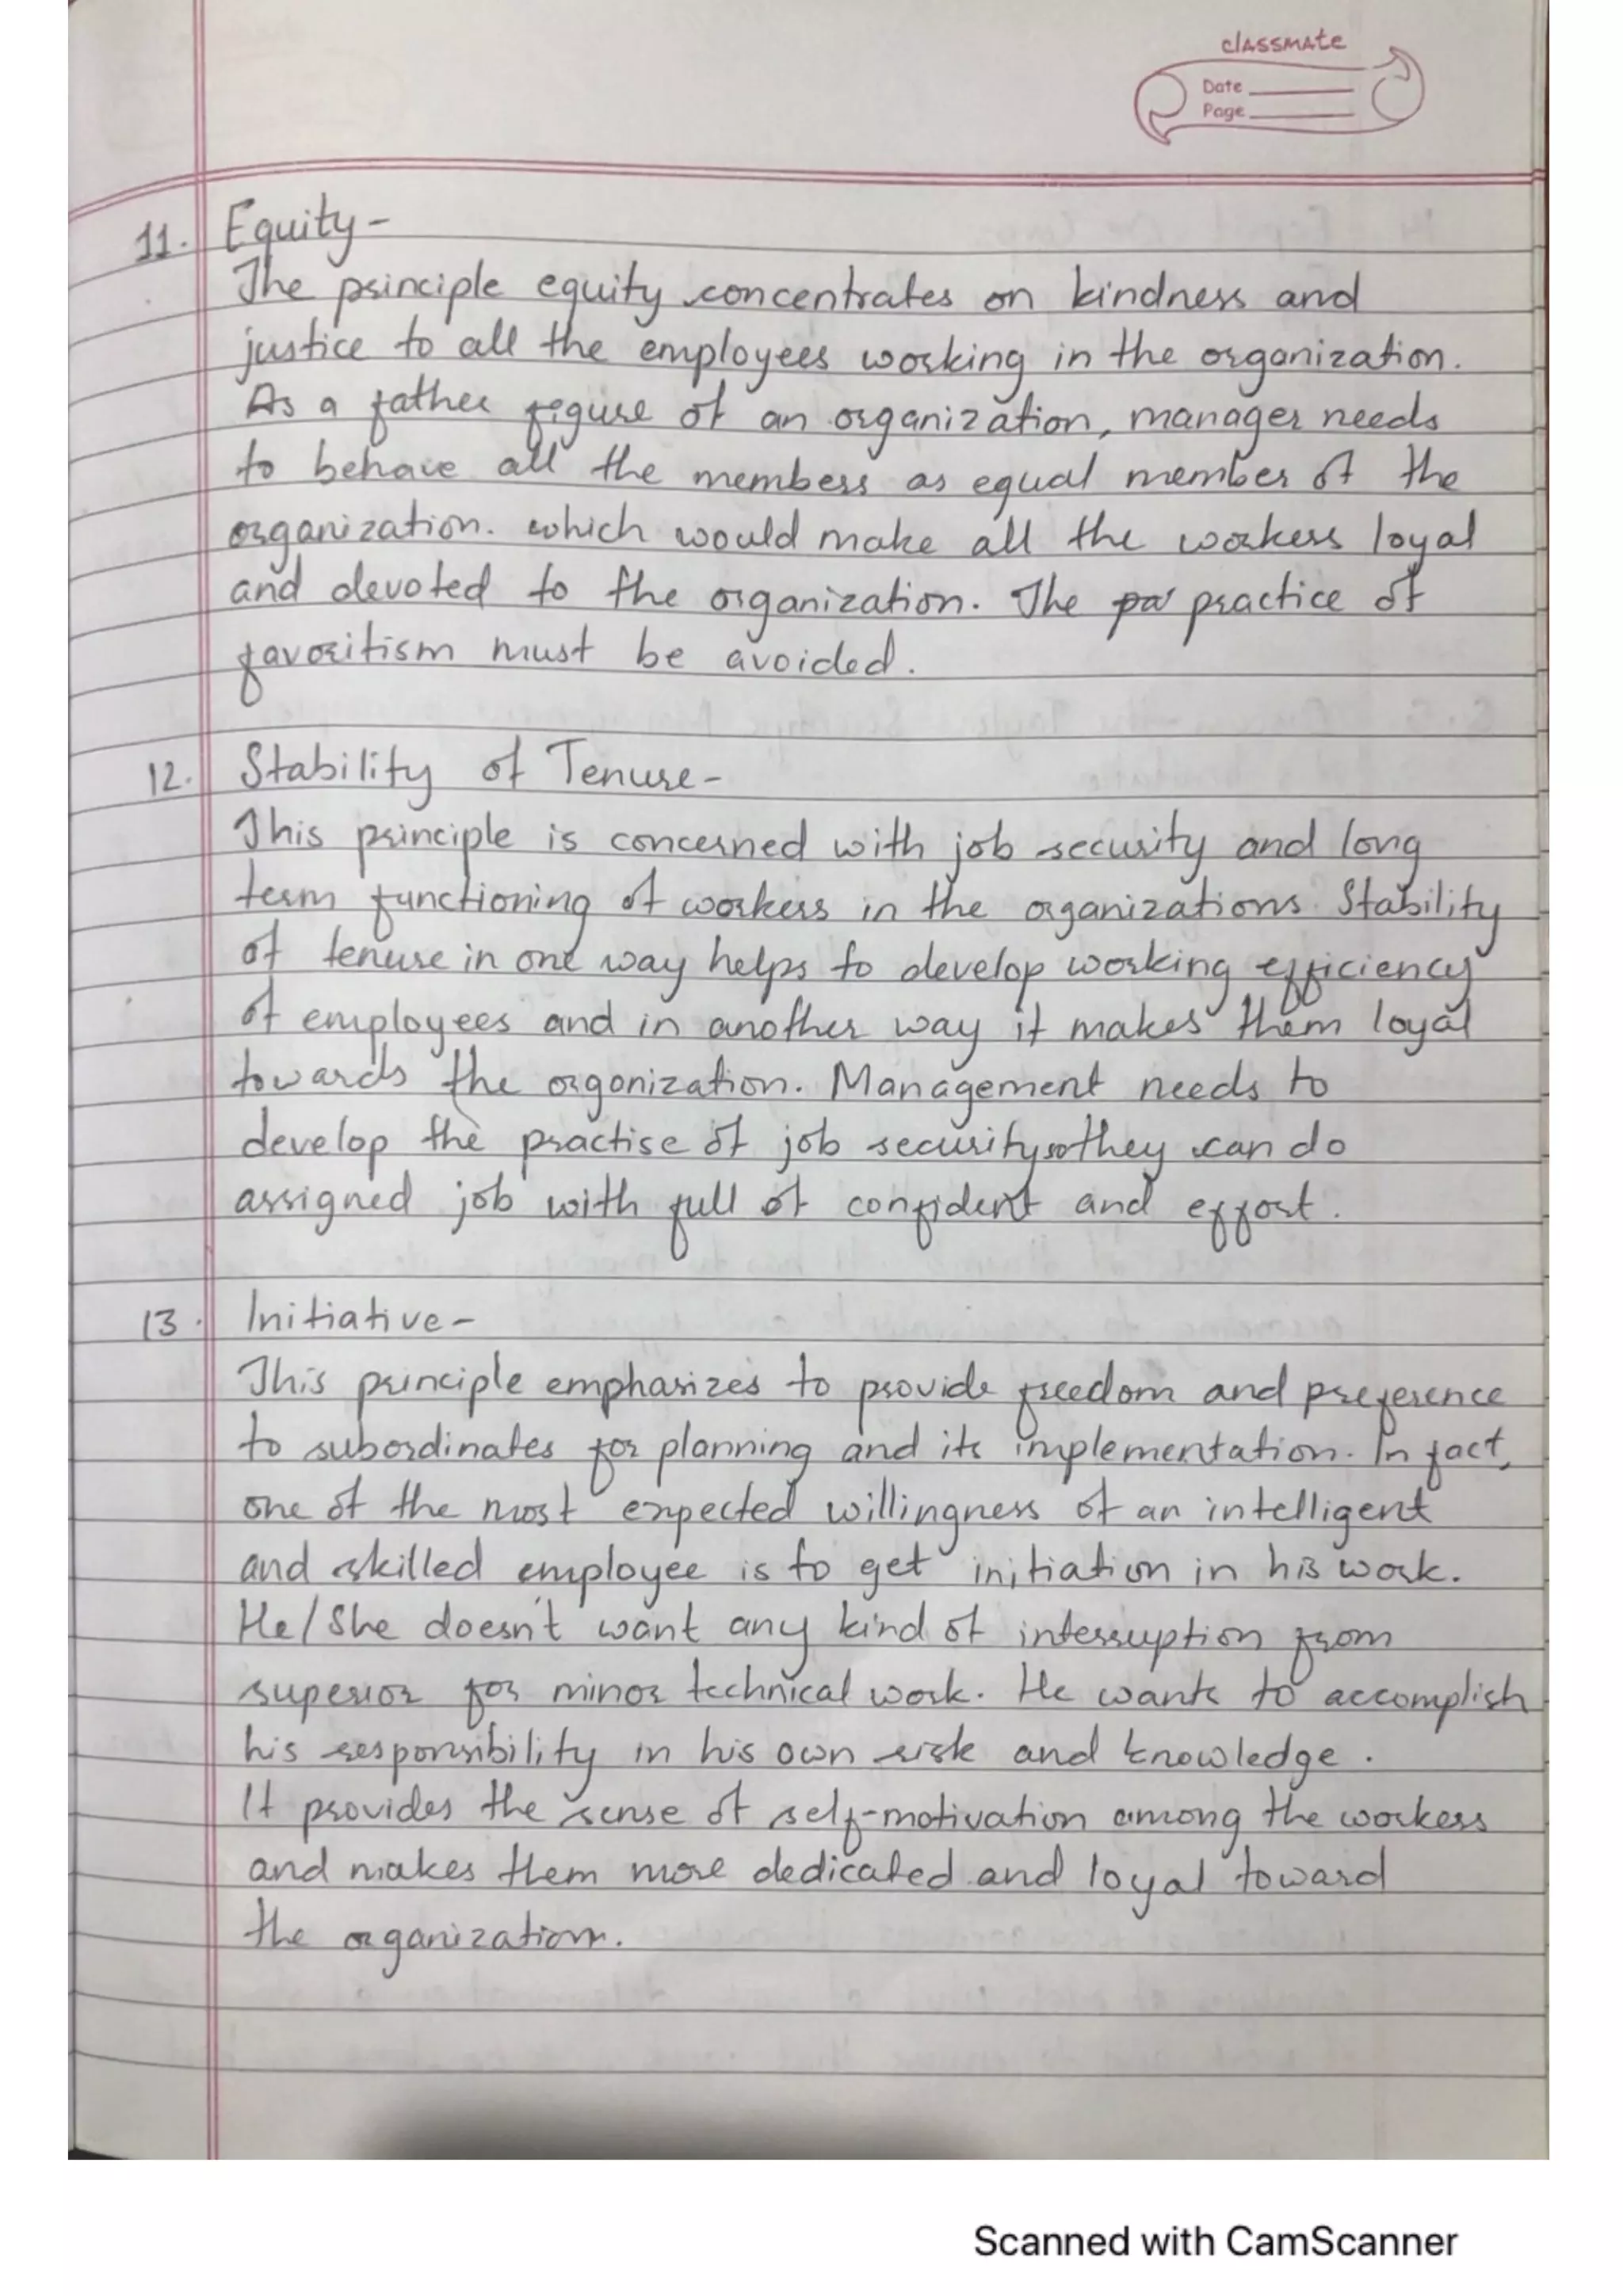 classmate
Date
Page
11. Equity-
The principle equity concentrates on kindness and
justice to all the employees working in the organization.
As a father figure of an organization, manager needs
to behave all the members as equal member of the
organization. which would make all the workers loyal
and devoted to the organization. The pa practice of
favoritism must be avoided.
12. Stability of Tenure-
This principle is concerned with job security and long
term functioning of workers in the organizations. Stability
of tenure in one way helps to develop working efficiency
of employees and in another way it makes them loyal
towards the organization. Management needs to
develop the practise of job security so they can do
assigned job with full of confident and effort.
13. Initiative-
This principle emphasizes to provide freedom and preference
to subordinates for planning and its implementation. In fact,
one of the most expected willingness of an intelligent
and skilled employee is to get initiation in his work.
He/She doesn't want any kind of interruption from
superior for minor technical work. He wants to accomplish
his responsibility in his own risk and knowledge.
It provides the sense of self-motivation among the workers
and makes them more dedicated and loyal toward
the organization.
Scanned with CamScanner